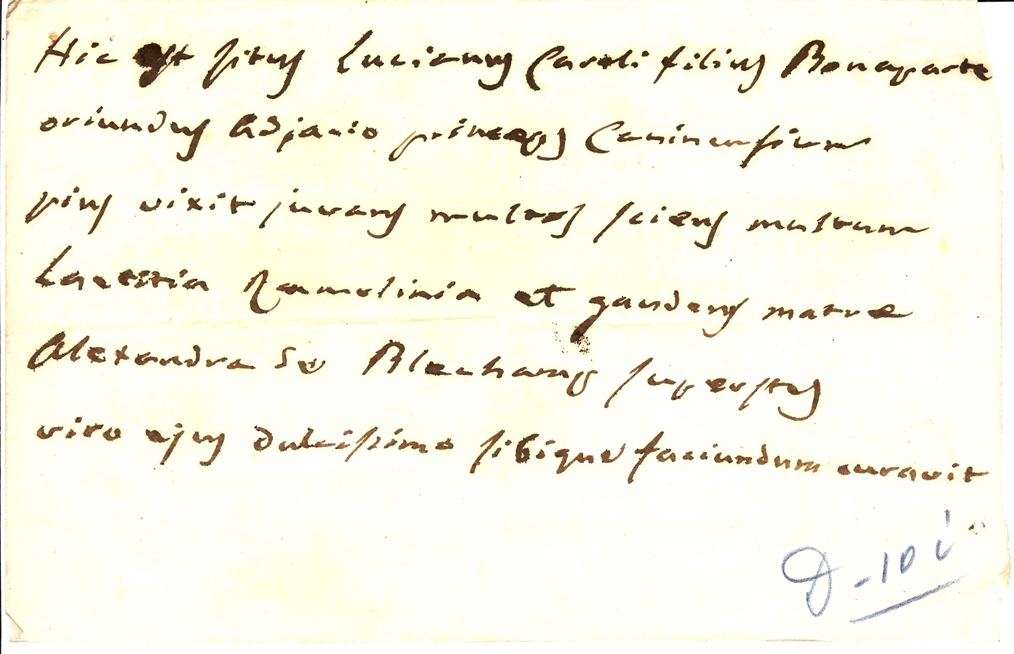 Hic est situs Lucianus Caroli filius Bonaparte
oriundus Adjacio princeps Caninensium
pius vixit juvans multos sciens multum
Laetitia Ramolinia et gaudens matre
Alexandra de Blechamps superstes
viro ejus dulcissimo sibique faciundum curavit
D-10 i